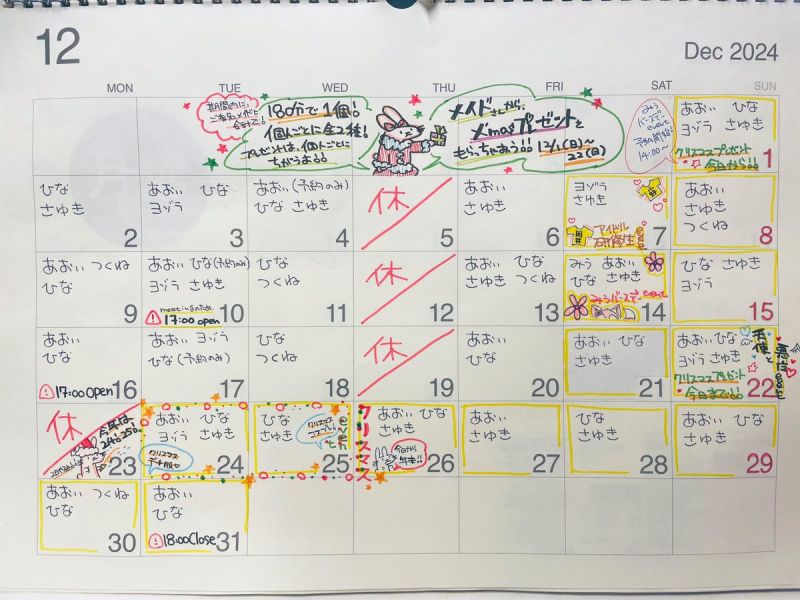 12
Dec 2024
MON TUE WED THU FRI SAT SUN
期間内に、
ご来店メイドと
合計で!
180分で1個!
個人ごとに全2種!
プレゼントは、個人ごとに
ちがうよぉぉ
メイドさんから、
X'masプレゼントを
もらっちゃおう!! 12/1(日)～
22(日)
みう
バースデー
event
予約開始!
14:00～
あおい ひな
ヨゾラ さゆき
クリスマスプレゼント
今日から!!
1
ひな
さゆき
2
あおい ひな
ヨゾラ
3
あおい(予約のみ)
ひな さゆき
4
休
5
あおい
さゆき
6
ヨゾラ
さゆき
アイドル
研修生
event
7
あおい
さゆき
つくね
8
あおい つくね
ひな
9
あおい ひな(予約のみ)
ヨゾラ さゆき
17:00 open
10
ひな
つくね
11
休
12
あおい さゆき
ひな つくね
13
みう あおい
ひな さゆき
みうバースデーevent
14
ひな さゆき
ヨゾラ
15
あおい
ひな
17:00 Open
16
あおい ヨゾラ
ひな(予約のみ)
17
ひな
つくね
18
休
19
あおい
ひな
20
あおい ひな
さゆき
21
あおい ひな
ヨゾラ さゆき
クリスマスプレゼント
今日まで!!
天使と
悪魔event
22
休
今年は、
24と25日。
23
あおい ひな
ヨゾラ さゆき
クリスマス
24
ひな
さゆき
クリスマス
コスプレ
25
クリスマス
あおい ひな
さゆき
今日から
年末!!
26
あおい
さゆき
27
ひな
さゆき
28
あおい ひな
さゆき
29
あおい つくね
ひな
30
あおい
ひな
18:00Close
31